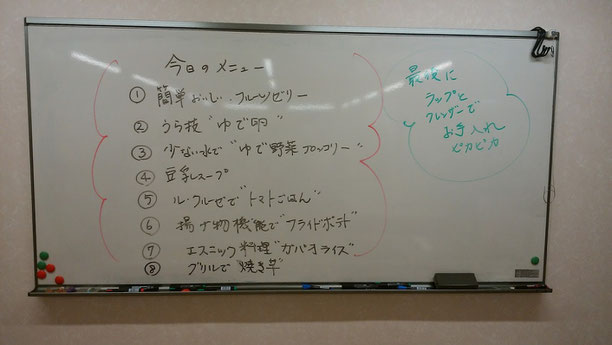 今日のメニュー
① 簡単おいしい フルーツゼリー
② うら技 "ゆで卵"
③ 少ない水で "ゆで野菜ブロッコリー"
④ 豆乳スープ
⑤ ル・クルーゼで "トマトごはん"
⑥ 揚げ物機能で "フライドポテト"
⑦ エスニック料理 "ガパオライス"
⑧ グリルで "焼き芋"
最後に
ラップと
クレンザーで
お手入れ
ピカピカ